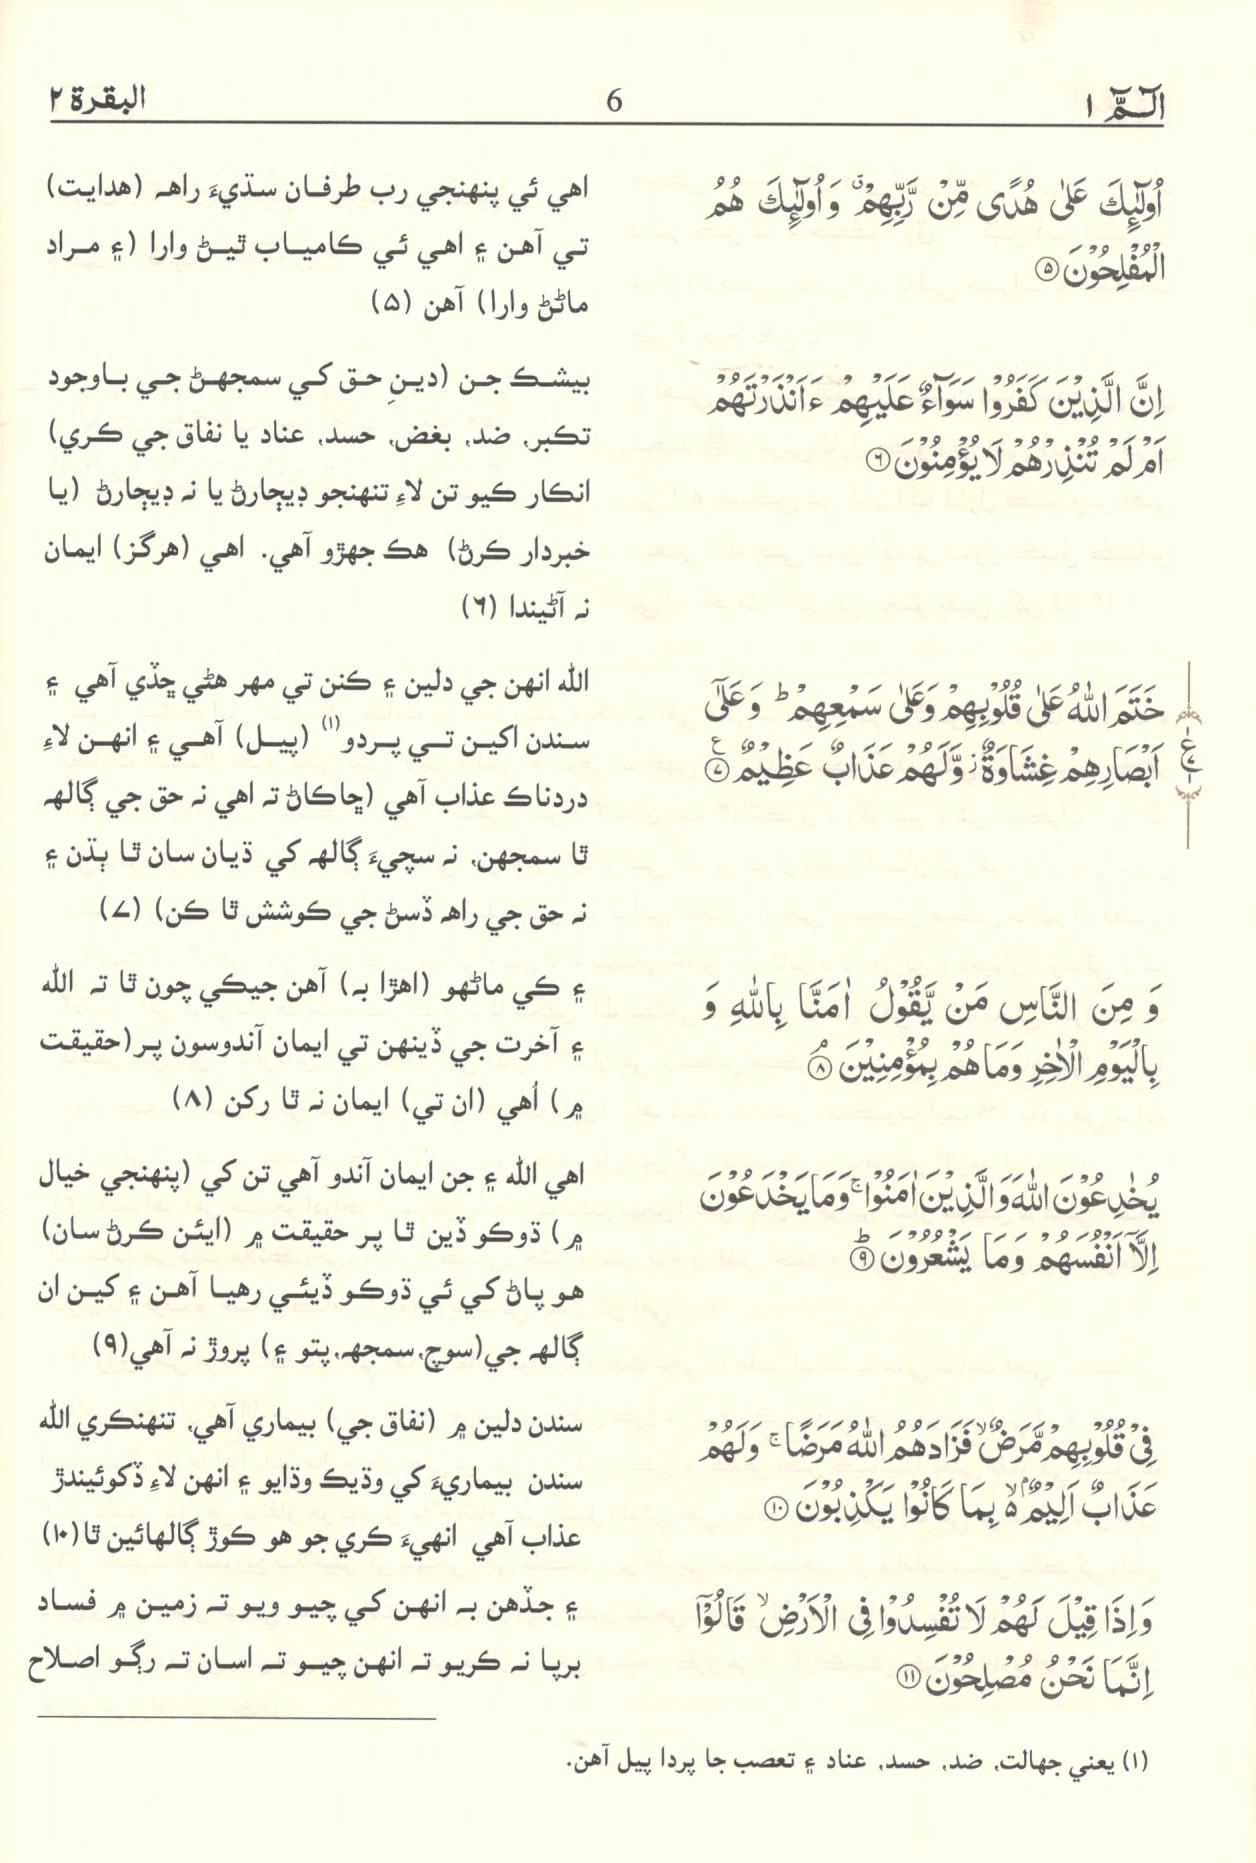 الٓـمّٓ ١
6
البقرة ٢
اُولٰٓئِكَ عَلٰى هُدًى مِّنْ رَّبِّهِمْ ۗ وَاُولٰٓئِكَ هُمُ
الْمُفْلِحُوْنَ ۝۵
اهي ئي پنهنجي رب طرفان سڌيءَ راهہ (هدايت)
تي آهن ۽ اهي ئي ڪامياب ٿيڻ وارا (۽ مراد
ماڻڻ وارا) آهن (۵)
اِنَّ الَّذِيْنَ كَفَرُوْا سَوَآءٌ عَلَيْهِمْ ءَاَنْذَرْتَهُمْ
اَمْ لَمْ تُنْذِرْهُمْ لَا يُؤْمِنُوْنَ ۝۶
بيشڪ جن (دينِ حق کي سمجهڻ جي باوجود
تڪبر، ضد، بغض، حسد، عناد يا نفاق جي ڪري)
انڪار ڪيو تن لاءِ تنهنجو ڊيڄارڻ يا نہ ڊيڄارڻ (يا
خبردار ڪرڻ) هڪ جهڙو آهي. اهي (هرگز) ايمان
نہ آڻيندا (٦)
خَتَمَ اللّٰهُ عَلٰى قُلُوْبِهِمْ وَعَلٰى سَمْعِهِمْ ؕ وَعَلٰٓى
اَبْصَارِهِمْ غِشَاوَةٌ ۫ وَّلَهُمْ عَذَابٌ عَظِيْمٌ ۝۷
الله انهن جي دلين ۽ ڪنن تي مهر هڻي ڇڏي آهي ۽
سندن اکين تي پردو(١) (پيل) آهي ۽ انهن لاءِ
دردناڪ عذاب آهي (ڇاڪاڻ تہ اهي نہ حق جي ڳالهہ
ٿا سمجهن، نہ سچيءَ ڳالهہ کي ڌيان سان ٿا ٻڌن ۽
نہ حق جي راهہ ڏسڻ جي ڪوشش ٿا ڪن) (٧)
وَ مِنَ النَّاسِ مَنْ يَّقُوْلُ اٰمَنَّا بِاللّٰهِ وَ
بِالْيَوْمِ الْاٰخِرِ وَمَا هُمْ بِمُؤْمِنِيْنَ ۝۸
۽ ڪي ماڻهو (اهڙا بہ) آهن جيڪي چون ٿا تہ الله
۽ آخرت جي ڏينهن تي ايمان آندوسون پر(حقيقت
۾) اُهي (ان تي) ايمان نہ ٿا رکن (٨)
يُخٰدِعُوْنَ اللّٰهَ وَالَّذِيْنَ اٰمَنُوْا ۚ وَمَا يَخْدَعُوْنَ
اِلَّآ اَنْفُسَهُمْ وَمَا يَشْعُرُوْنَ ۝۹ؕ
اهي الله ۽ جن ايمان آندو آهي تن کي (پنهنجي خيال
۾) ڌوڪو ڏين ٿا پر حقيقت ۾ (ايئن ڪرڻ سان)
هو پاڻ کي ئي ڌوڪو ڏيئي رهيا آهن ۽ کين ان
ڳالهہ جي(سوچ،سمجهہ،پتو ۽) پروڙ نہ آهي(٩)
فِيْ قُلُوْبِهِمْ مَّرَضٌ ۙ فَزَادَهُمُ اللّٰهُ مَرَضًا ۚ وَلَهُمْ
عَذَابٌ اَلِيْمٌۢ ۙ۬ بِمَا كَانُوْا يَكْذِبُوْنَ ۝۱۰
سندن دلين ۾ (نفاق جي) بيماري آهي، تنهنڪري الله
سندن بيماريءَ کي وڌيڪ وڌايو ۽ انهن لاءِ ڏکوئيندڙ
عذاب آهي انهيءَ ڪري جو هو ڪوڙ ڳالهائين ٿا(١٠)
وَاِذَا قِيْلَ لَهُمْ لَا تُفْسِدُوْا فِى الْاَرْضِ ۙ قَالُوْٓا
اِنَّمَا نَحْنُ مُصْلِحُوْنَ ۝۱۱
۽ جڏهن بہ انهن کي چيو ويو تہ زمين ۾ فساد
برپا نہ ڪريو تہ انهن چيو تہ اسان تہ رڳو اصلاح
(١) يعني جهالت، ضد، حسد، عناد ۽ تعصب جا پردا پيل آهن.